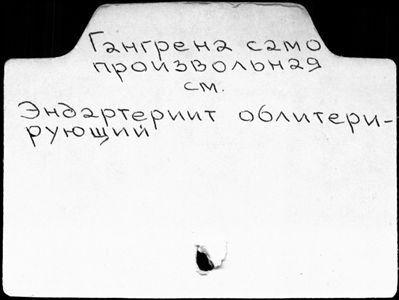 Гангрена само
произвольная
см.
Эндартериит облитери-
рующий